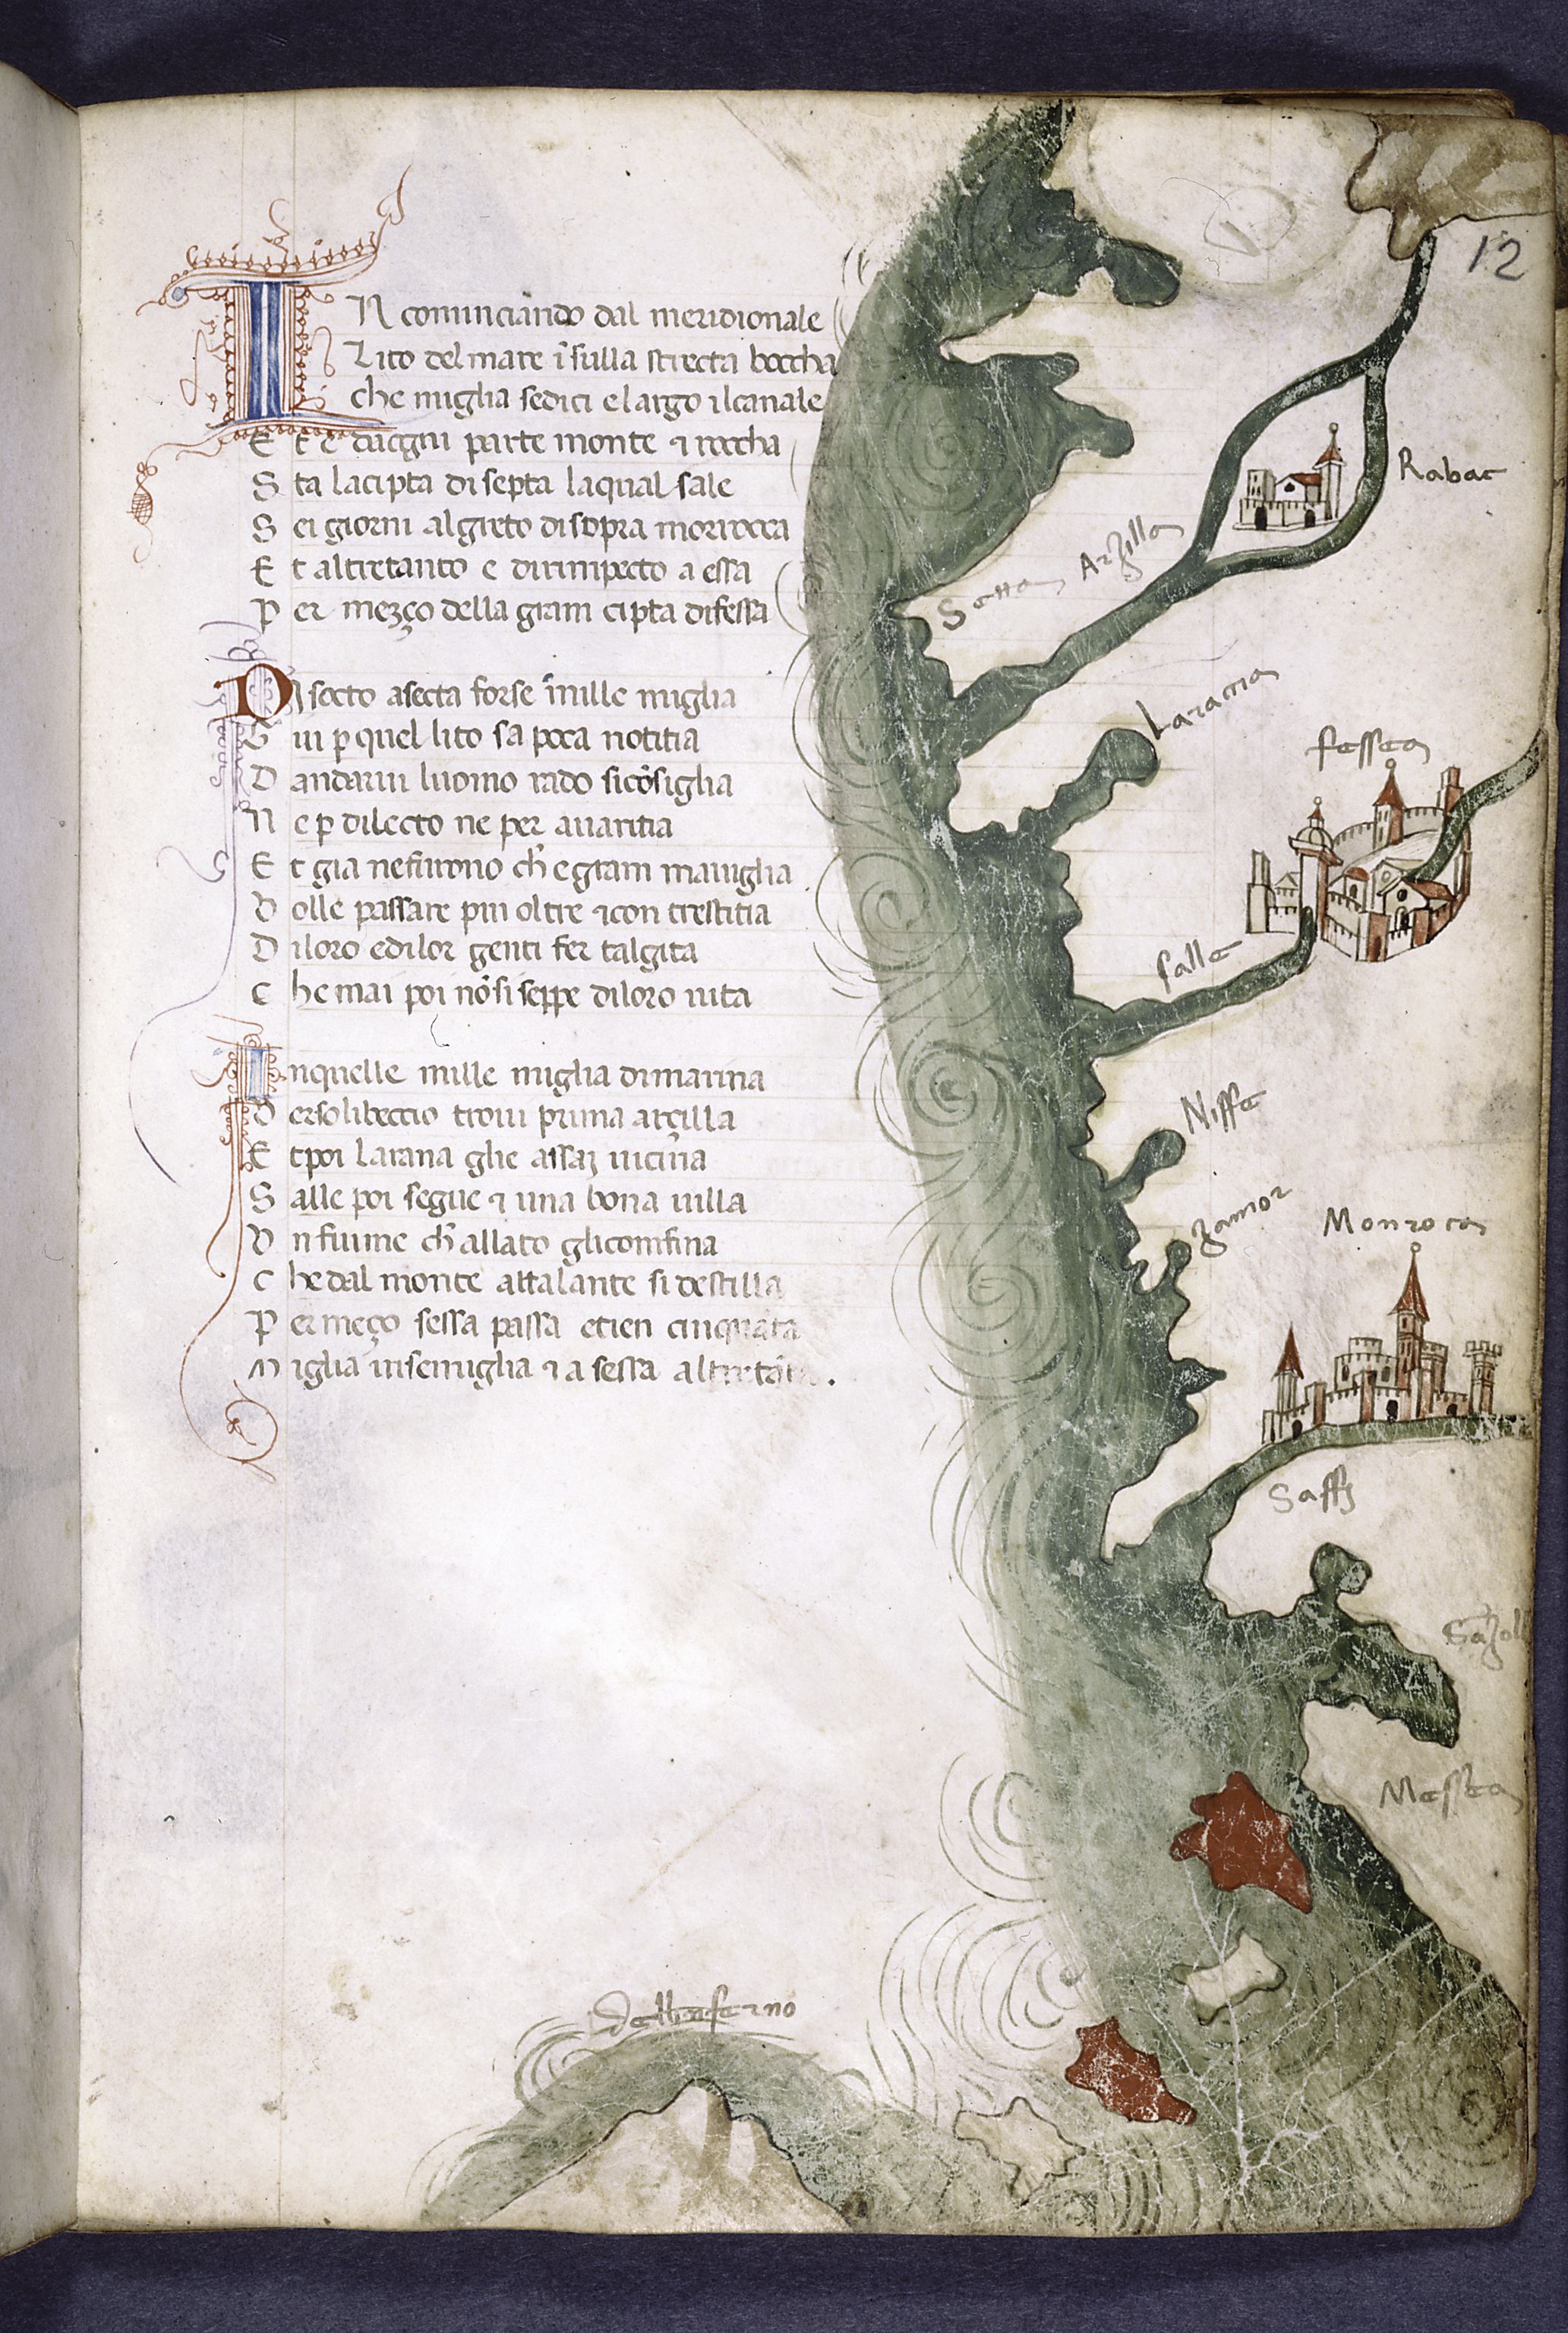 IN cominciando dal meridionale
Lito del mare ĩsulla strecta boccha
che miglia sedici elargo ilcanale
Et e daogni parte monte ⁊ roccha
Sta lacipta di septa laqual sale
Sei giorni algreto disopra morrocca
Et altretanto e dirimpecto a essa
Per mezço della gram cipta difessa
Di secto asecta forse ĩmille miglia
Giu p quel lito sa poca notitia
Dandarui luomo rado sicõsiglia
Ne p dilecto ne per auaritia
Et gia nefurono ch̃ egram mauiglia
Volle passare piu oltre ⁊con trestitia
Diloro edilor genti fer talgita
Che mai poi nõsi seppe diloro uita
Inquelle mille miglia dimarina
Versolibeccio troui prima arçilla
Et poi Larana ghe assaj uicina
Salle poi segue ⁊ una bona uilla
Vn fiume ch̃ allato gliconfina
Che dal monte attalante si destilla
Per meço fessa passa etien cinquãta
Miglia insemiglia ⁊ a fessa
12
Rabac
Setta
Arzilla
Laranna
fessea
salle
Niffe
zamor
Monroca
Saffj
Messea